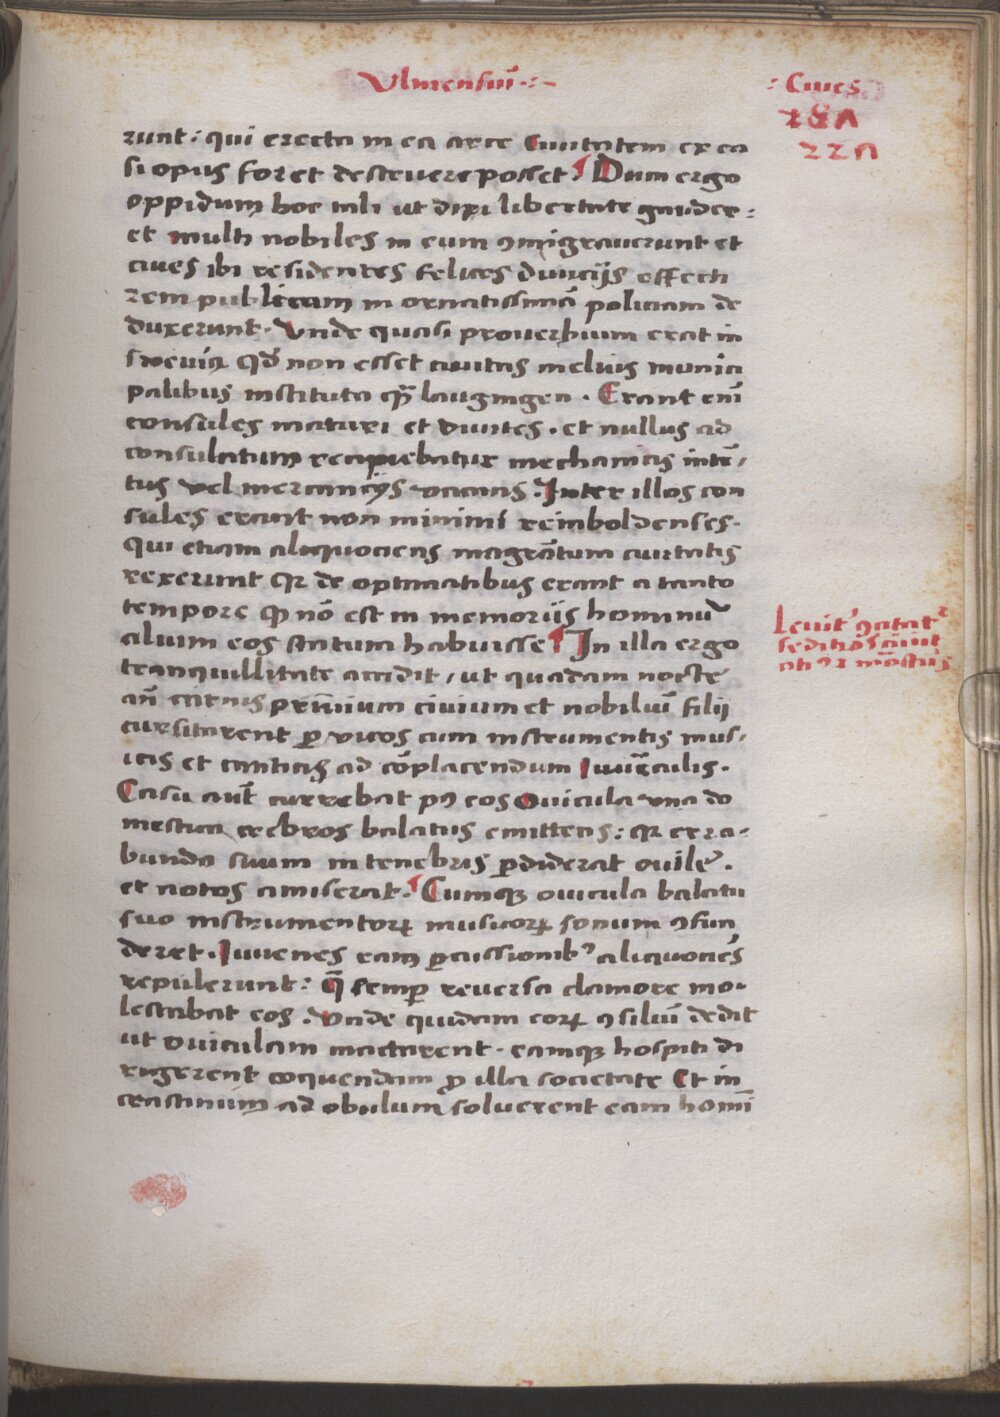 Vlmensiū
Ciues
281
221
runt: qui erecta in ea arce Ciuitatem ex ea
si opus foret destruere posset. Dum ergo
oppidum hoc tali ut dixi libertate gauder=
et multi nobiles in eum ꝯmigrauerunt et
ciues ibi residentes felices diuicijs effecti
rem publicam in ornatissimā policiam de
duxerunt. Vnde quasi prouerbium erat in
sueuia qd̄ non esset ciuitas melius munici
palibus instituta qꝫ̄ laugingen. Erant enī
consules maturi et diuites. et nullus ad
consulatum recipiebatur mechanicis intē/
tus vel mercancijs vacans. Inter illos con
sules erant non minimi reimboldenses.
Qui etiam aliquociens magrātum ciuitatis
rexerunt qꝛ de optimatibus erant a tanto
tempore qꝫ nō est in memorijs hominū
alium eos statum habuisse In illa ergo
tranquillitate accidit, ut quadam nocte
añ carnis priuium ciuium et nobiliū filij
cursitarent ꝑ vicos cum instrumentis mus/
icis et canticis ad cōplacendum iuuēculis.
Casu aut̄ currebat pꝰ eos Ouicula vna do
mestica crebros balatus emittens: qꝛ erra=
bunda suum in tenebris ꝑdiderat ouile.
et notos amiserat. Cumqꝫ ouicula balatu
suo instrumentoꝝ musicoꝝ sonum ꝯfun
deret. Iuuenes eam ꝑcussionibꝰ aliquociēs
repulerunt: q̄ semꝑ reuersa clamore mo=
lestabat eos. Vnde quidam eoꝝ ꝯsiliū dedit
ut ouiculam mactarent. eamqꝫ hospiti di
rigerent coquendam ꝓ illa societate Et in
crastinum ad obulum soluerent eam homī